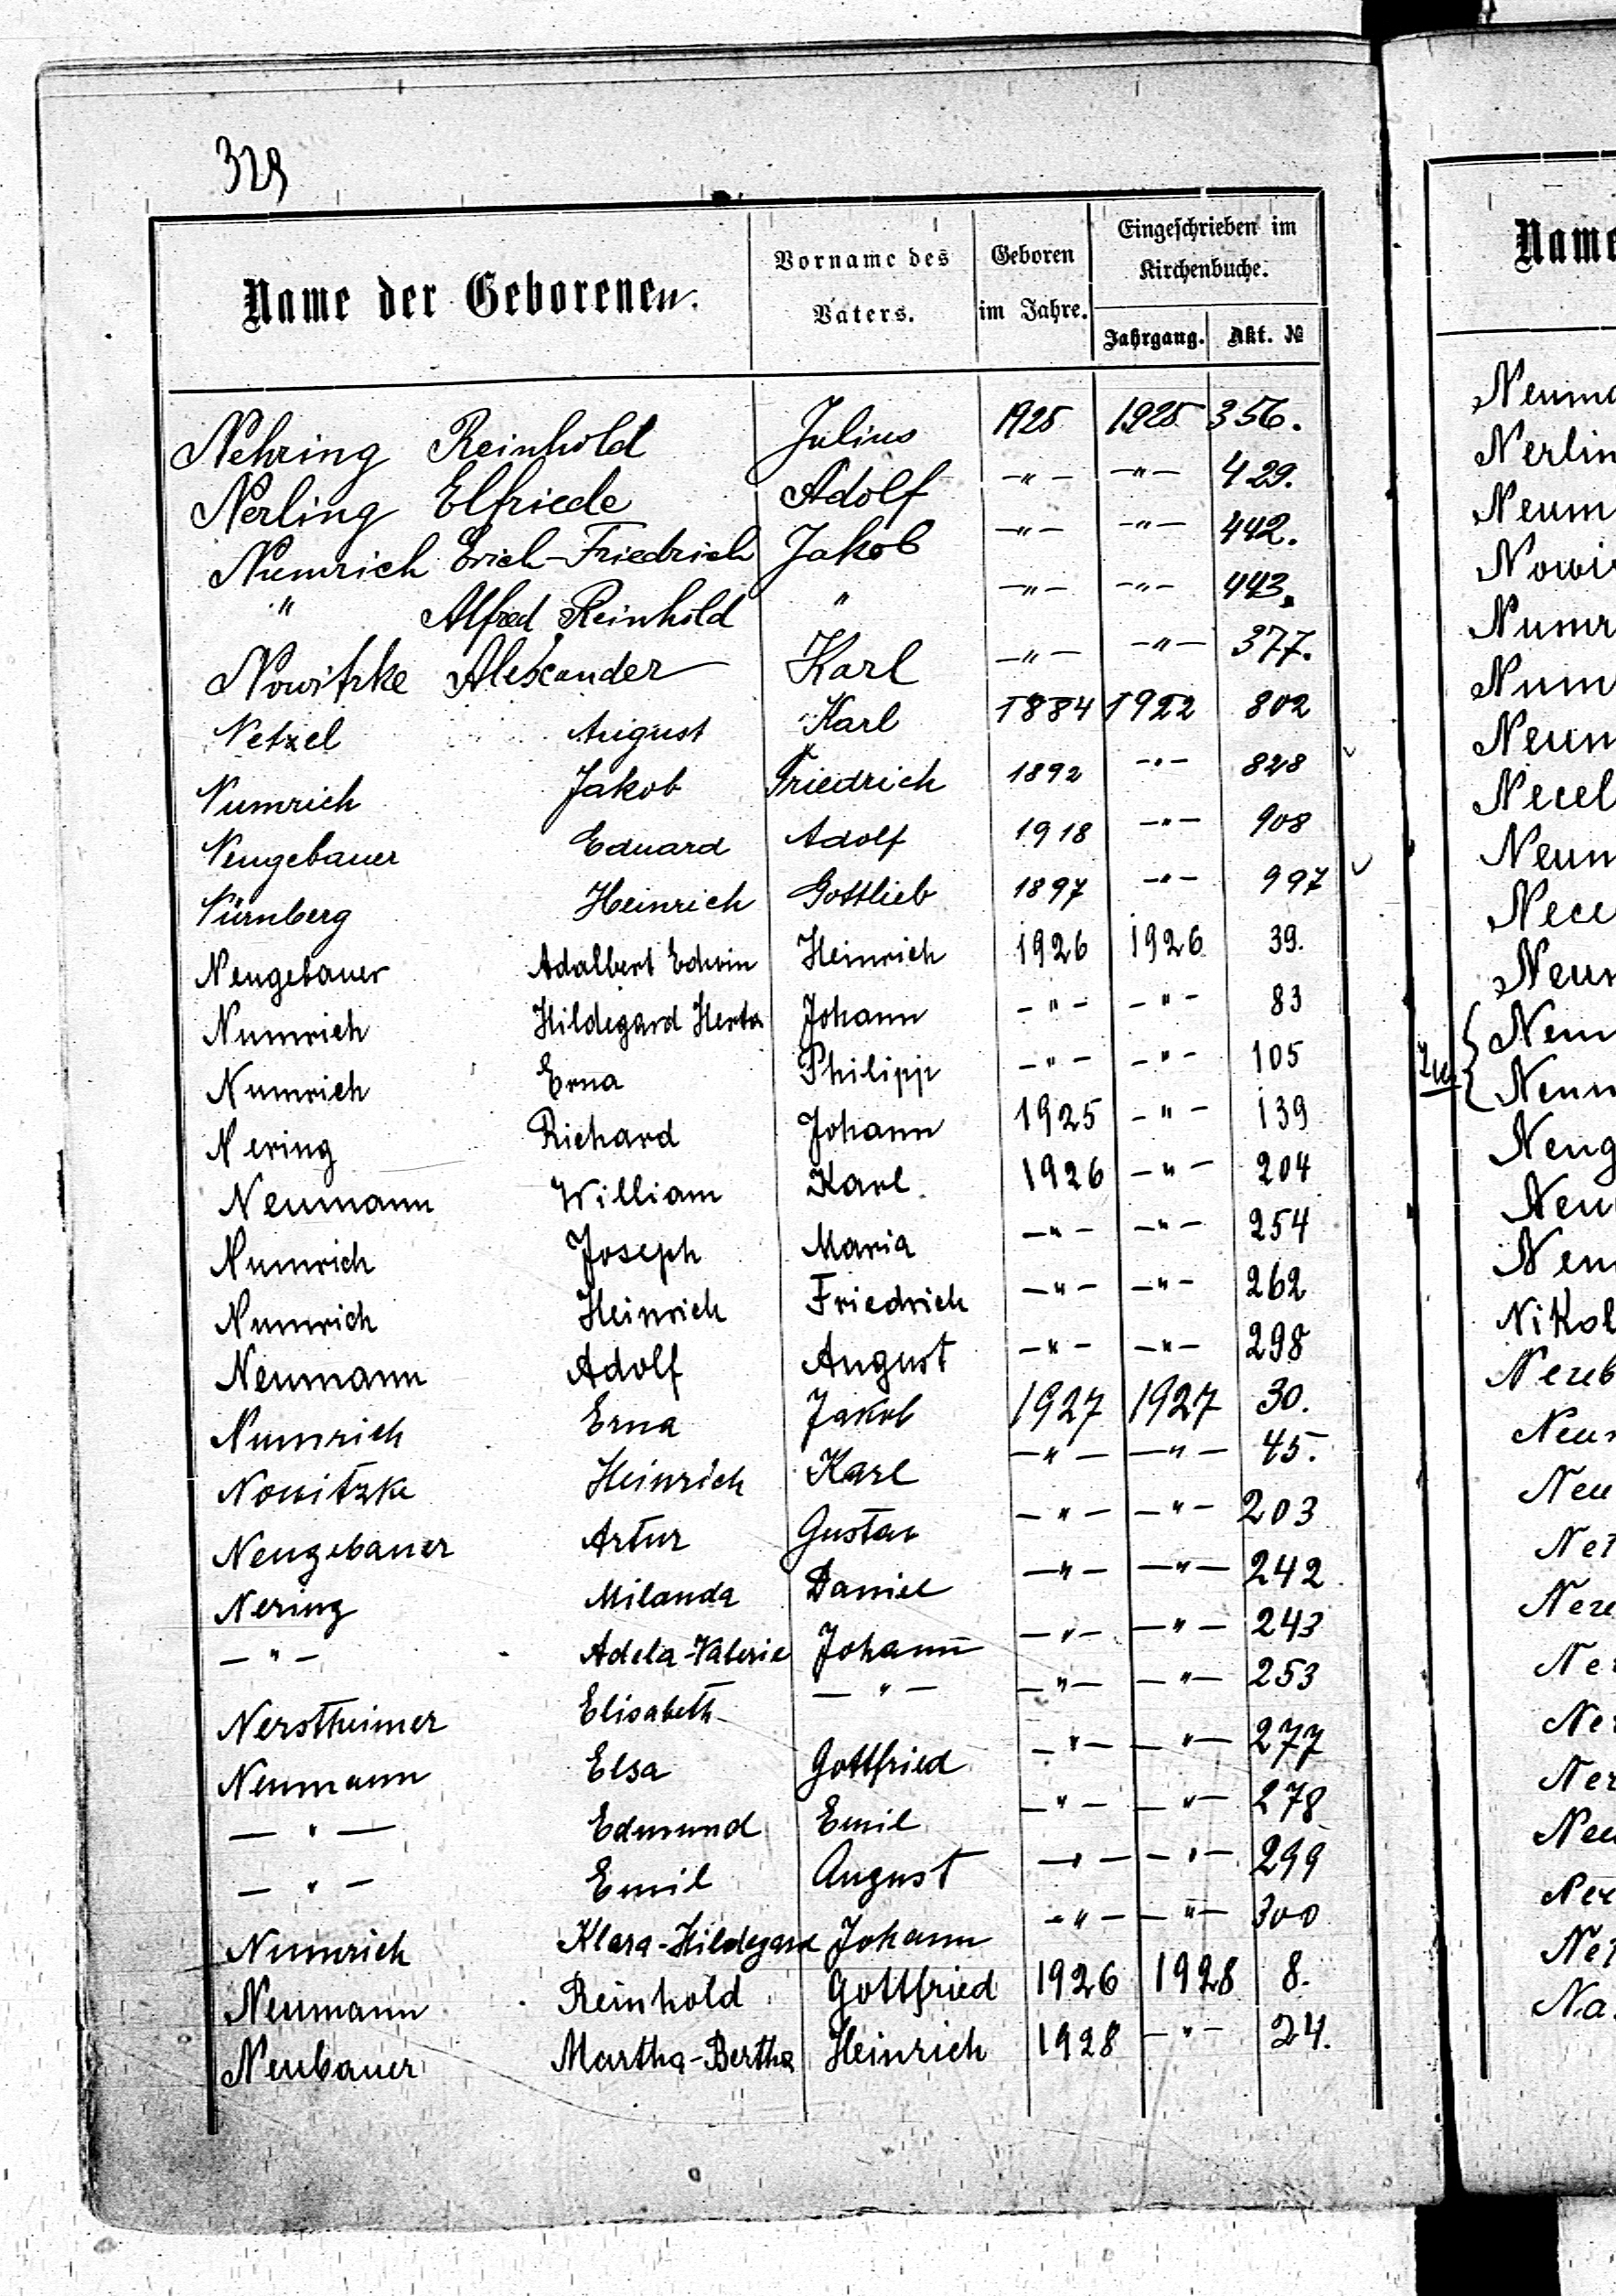 329
Name der Geborenen. Vorname des Vaters. Geboren im Jahre. Eingeschrieben im Kirchenbuche. Jahrgang. Akt. №
Nehring Reinhold Julius 1925 1925 356.
Nerling Elfriede Adolf -"- -"- 429.
Numrich Erich-Friedrich Jakob -"- -"- 442.
" Alfred Reinhold " -"- -"- 443.
Nowitzke Alexander Karl -"- -"- 377.
Netzel August Karl 1884 1922 802
Numrich Jakob Friedrich 1892 -"- 828
Neugebauer Eduard Adolf 1918 -"- 908
Nürnberg Heinrich Gottlieb 1897 -"- 997
Neugebauer Adalbert Edwin Heinrich 1926 1926 39.
Numrich Hildegard Herta Johann -"- -"- 83
Numrich Erna Philipp -"- -"- 105
Nering Richard Johann 1925 -"- 139
Neumann William Karl 1926 -"- 204
Numrich Joseph Maria -"- -"- 254
Numrich Heinrich Friedrich -"- -"- 262
Neumann Adolf August -"- -"- 298
Numrich Erna Jakob 1927 1927 30.
Nowitzke Heinrich Karl -"- -"- 45.
Neugebauer Artur Gustav -"- -"- 203
Nering Milanda Daniel -"- -"- 242
-"- Adela-Valerie Johann -"- -"- 243
Elisabeth -"- -"- -"- 253
Neumann Elsa Gottfried -"- -"- 277
-"- Edmund Emil -"- -"- 278
-"- Emil August -"- -"- 299
Numrich Klara-Hildegard Johann -"- -"- 300
Neumann Reinhold Gottfried 1926 1928 8.
Neubauer Martha-Bertha Heinrich 1928 -"- 24.
Name